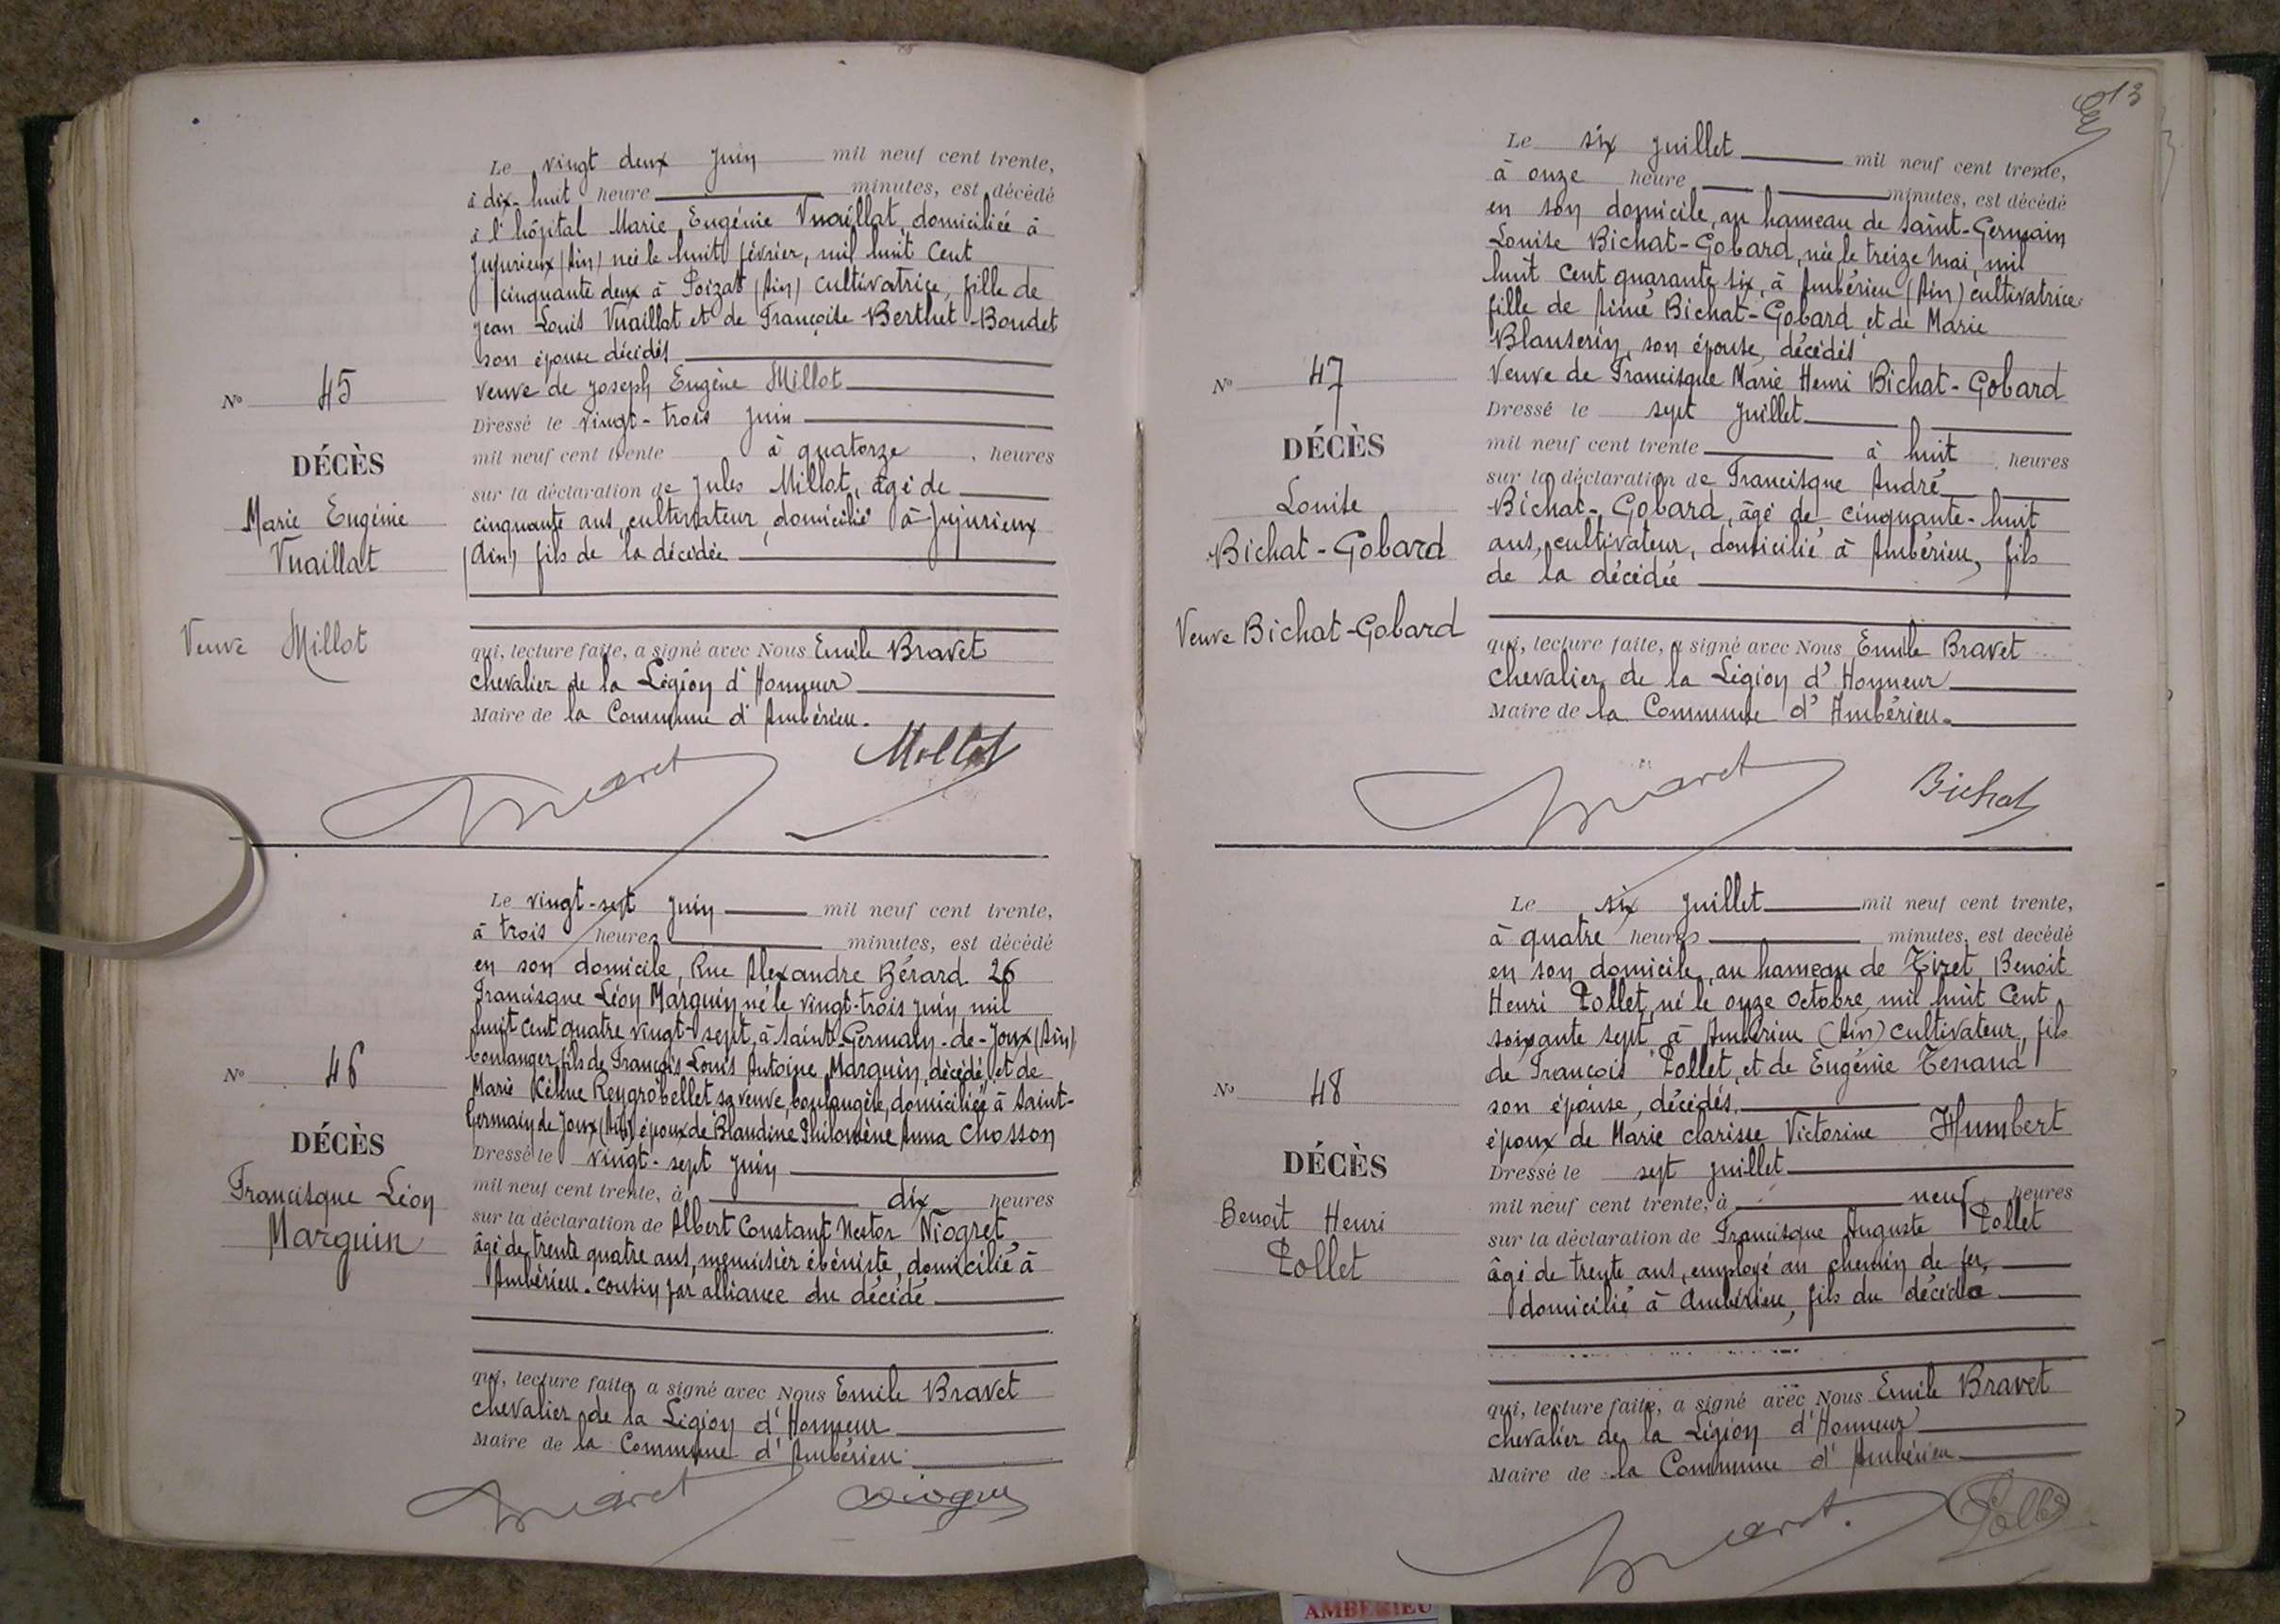 Le vingt deux Juin mil neuf cent trente,
à dix-huit heure minutes, est décédé
à l'hôpital Marie Eugénie Vuaillat, domiciliée à
Jujurieux (Ain) née le huit février, mil huit cent
cinquante deux à Poizat (Ain) cultivatrice, fille de
Jean Louis Vuaillat et de Françoise Berthet-Boudet
son épouse décédés
veuve de Joseph Eugène Millot
Nº 45
Dressé le vingt-trois Juin
mil neuf cent trente à quatorze heures
DÉCÈS
sur la déclaration de Jules Millot, âgé de
Marie Eugénie
cinquante ans, cultivateur, domicilié à Jujurieux
Vuaillat
(Ain) fils de la décédée
Veuve Millot
qui, lecture faite, a signé avec Nous Emile Bravet
chevalier de la Légion d'Honneur
Maire de la Commune d'Ambérieu.
Bravet Millot
Le vingt-sept Juin mil neuf cent trente,
à trois heures minutes, est décédé
en son domicile, Rue Alexandre Bérard 26
Francisque Léon Marguin, né le vingt-trois juin, mil
huit cent quatre vingt-sept, à Saint-Germain-de-Joux (Ain)
boulanger, fils de François Louis Antoine Marguin, décédé, et de
Marie Reygrobellet sa veuve, boulangère, domiciliée à Saint-
Germain de Joux (Ain) époux de Blandine Philomène Anna Chosson
Nº 46
DÉCÈS
Dressé le vingt-sept Juin
Francisque Léon
mil neuf cent trente, à dix heures
Marguin
sur la déclaration de Albert Constant Nestor Niogret,
âgé de trente quatre ans, menuisier ébéniste, domicilié à
Ambérieu. cousin par alliance du décédé
qui, lecture faite, a signé avec Nous Emile Bravet
chevalier de la Légion d'Honneur
Maire de la Commune d'Ambérieu
Bravet Niogret
13
Le six Juillet mil neuf cent trente,
à onze heure minutes, est décédé
en son domicile, au hameau de Saint-Germain
Louise Bichat-Gobard, née le treize Mai, mil
huit cent quarante six, à Ambérieu (Ain) cultivatrice
fille de Aimé Bichat-Gobard et de Marie
Blanserin, son épouse, décédés
Veuve de Francisque Marie Henri Bichat-Gobard
Nº 47
Dressé le sept Juillet
DÉCÈS
mil neuf cent trente à huit heures
sur la déclaration de Francisque André
Louise
Bichat-Gobard, âgé de cinquante-huit
Bichat-Gobard
ans, cultivateur, domicilié à Ambérieu, fils
de la décédée
Veuve Bichat-Gobard
qui, lecture faite, a signé avec Nous Emile Bravet
chevalier de la Légion d'Honneur
Maire de la Commune d'Ambérieu.
Bravet Bichat
Le six Juillet mil neuf cent trente,
à quatre heures minutes, est decédé
en son domicile, au hameau de Tiret, Benoit
Henri Pollet, né le onze Octobre, mil huit Cent
soixante sept à Ambérieu (Ain) cultivateur, fils
de François Pollet, et de Eugénie Tenand
son épouse, décédés.
époux de Marie clarisse Victorine Humbert
Nº 48
DÉCÈS
Dressé le sept Juillet
mil neuf cent trente, à neuf heures
Benoit Henri
sur la déclaration de Francisque Auguste Pollet
Pollet
âgé de trente ans, employé au chemin de fer,
domicilié à Ambérieu, fils du décédé
qui, lecture faite, a signé avec Nous Emile Bravet
chevalier de la Légion d'Honneur
Maire de la Commune d'Ambérieu
Bravet. Pollet
AMBERIEU